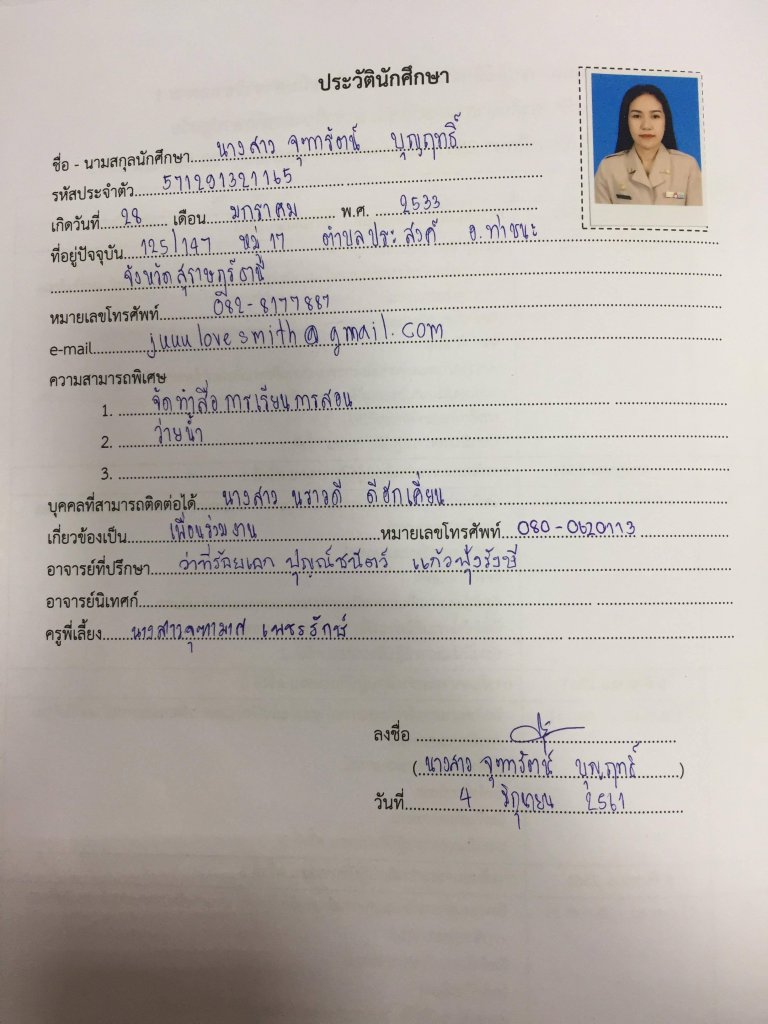 ประวัตินักศึกษา
ชื่อ - นามสกุลนักศึกษา นางสาว จุฑารัตน์ บุญฤทธิ์
รหัสประจำตัว 571291321165
เกิดวันที่ 28 เดือน มกราคม พ.ศ. 2533
ที่อยู่ปัจจุบัน 125/147 หมู่ 17 ตำบลประสงค์ อ.ท่าชนะ
จังหวัดสุราษฎร์ธานี
หมายเลขโทรศัพท์ 082-8177887
e-mail juuulovesmith@gmail.com
ความสามารถพิเศษ
1. จัดทำสื่อการเรียนการสอน
2. ว่ายน้ำ
3.
บุคคลที่สามารถติดต่อได้ นางสาว นราวดี
เกี่ยวข้องเป็น เพื่อนร่วมงาน หมายเลขโทรศัพท์ 080-0620113
อาจารย์ที่ปรึกษา ว่าที่ร้อยเอก ปุญณ์ชนิตว์ แก้วฟุ้งรังษี
อาจารย์นิเทศก์
ครูพี่เลี้ยง นางสาวจุฑามาศ เพชรรักษ์
ลงชื่อ
(นางสาว จุฑารัตน์ บุญฤทธิ์)
วันที่ 4 มิถุนายน 2561